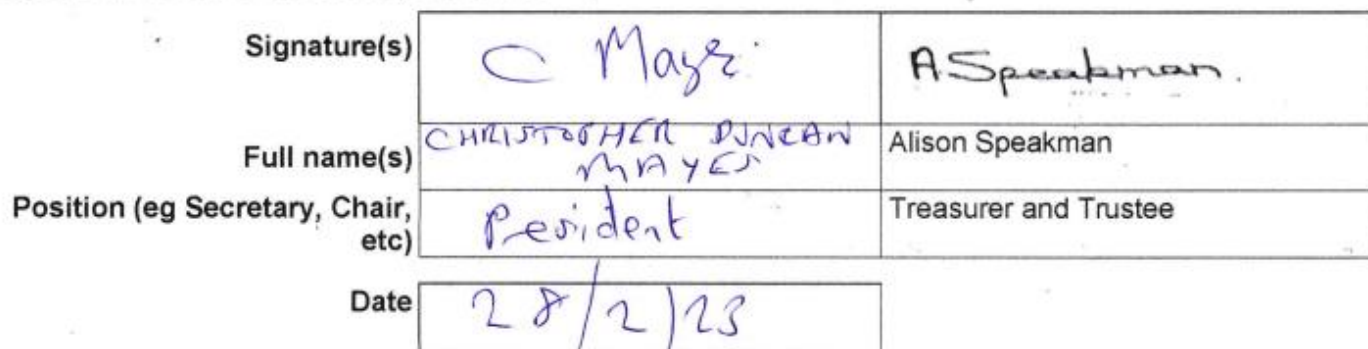 Signature(s) C Mayes A Speakman.
Full name(s) CHRISTOPHER DUNCAN MAYES Alison Speakman
Position (eg Secretary, Chair, etc) President Treasurer and Trustee
Date 28/2/23